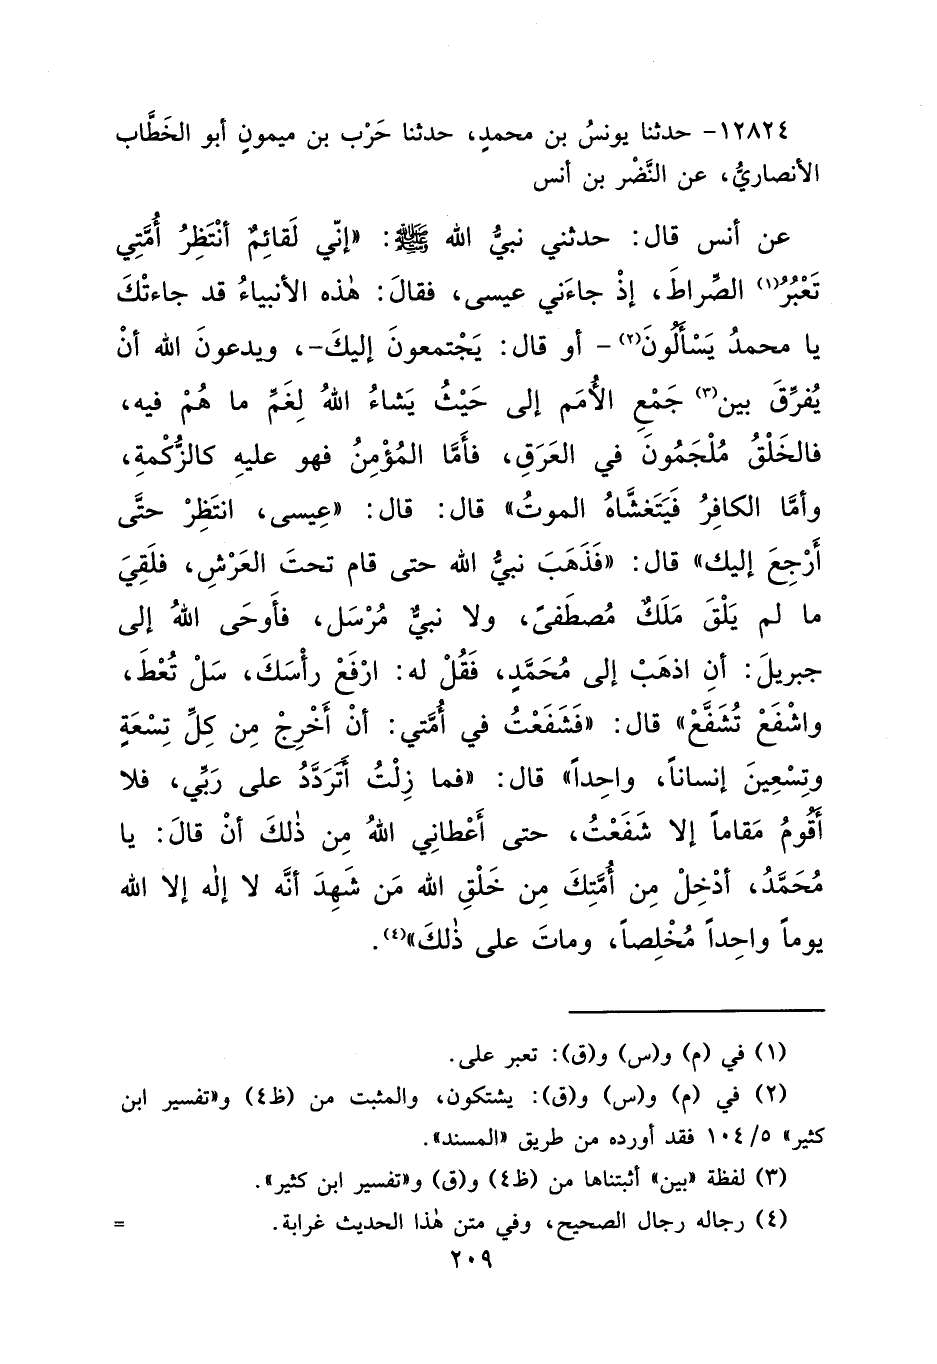 ١٢٨٢٤- حدثنا يونسُ بن محمدٍ، حدثنا حَرْب بن ميمونٍ أبو الخَطَّاب
الأنصاريُّ، عن النَّضْر بن أنس
عن أنس قال: حدثني نبيُّ الله ﷺ: «إنّي لَقائِمٌ أنْتَظِرُ أُمَّتِي
تَعْبُرُ(١) الصِّراطَ، إذْ جاءَني عيسى، فقالَ: هٰذه الأنبياءُ قد جاءتْكَ
يا محمدُ يَسْأَلُونَ(٢) - أو قال: يَجْتمعونَ إليكَ-، ويدعونَ الله أنْ
يُفرِّقَ بين(٣) جَمْعِ الأُمَم إلى حَيْثُ يَشاءُ اللهُ لِغَمِّ ما هُمْ فيه،
فالخَلْقُ مُلْجَمُونَ في العَرَقِ، فأمَّا المُؤْمِنُ فهو عليهِ كالزُّكْمةِ،
وأمَّا الكافِرُ فَيَتَغشَّاهُ الموتُ» قال: قال: «عِيسى، انتَظِرْ حتَّى
أَرْجِعَ إليك» قال: «فَذَهَبَ نبيُّ الله حتى قام تحتَ العَرْشِ، فلَقِيَ
ما لم يَلْقَ مَلَكٌ مُصطَفىً، ولا نبيٌّ مُرْسَل، فأَوحَى اللهُ إلى
جبريلَ: أنِ اذهَبْ إلى مُحَمَّدٍ، فَقُلْ له: ارْفَعْ رأْسَكَ، سَلْ تُعْطَ،
واشْفَعْ تُشَفَّعْ» قال: «فَشَفَعْتُ في أُمَّتي: أنْ أَخْرِجْ مِن كلِّ تِسْعَةٍ
وتِسْعِينَ إنساناً، واحداً» قال: «فما زِلْتُ أَتَردَّدُ على رَبِّي، فلا
أَقُومُ مَقاماً إلا شَفَعْتُ، حتى أَعْطاني اللهُ مِن ذٰلكَ أنْ قالَ: يا
مُحَمَّدُ، أدْخِلْ مِن أُمَّتِكَ مِن خَلْقِ الله مَن شَهِدَ أنَّه لا إلٰه إلا الله
يوماً واحِداً مُخْلِصاً، وماتَ على ذٰلكَ»(٤).
(١) في (م) و(س) و(ق): تعبر على.
(٢) في (م) و(س) و(ق): يشتكون، والمثبت من (ظ٤) و«تفسير ابن
كثير» ١٠٤/٥ فقد أورده من طريق «المسند».
(٣) لفظة «بين» أثبتناها من (ظ٤) و(ق) و«تفسير ابن كثير».
(٤) رجاله رجال الصحيح، وفي متن هٰذا الحديث غرابة. =
٢٠٩